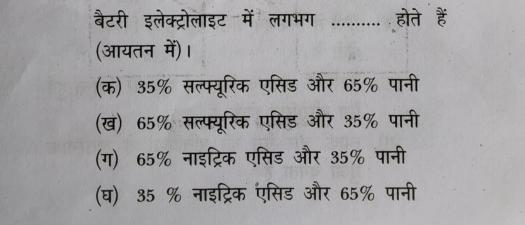 बैटरी इलेक्ट्रोलाइट में लगभग .......... होते हैं
(आयतन में)।
(क) 35% सल्फ्यूरिक एसिड और 65% पानी
(ख) 65% सल्फ्यूरिक एसिड और 35% पानी
(ग) 65% नाइट्रिक एसिड और 35% पानी
(घ) 35 % नाइट्रिक एसिड और 65% पानी